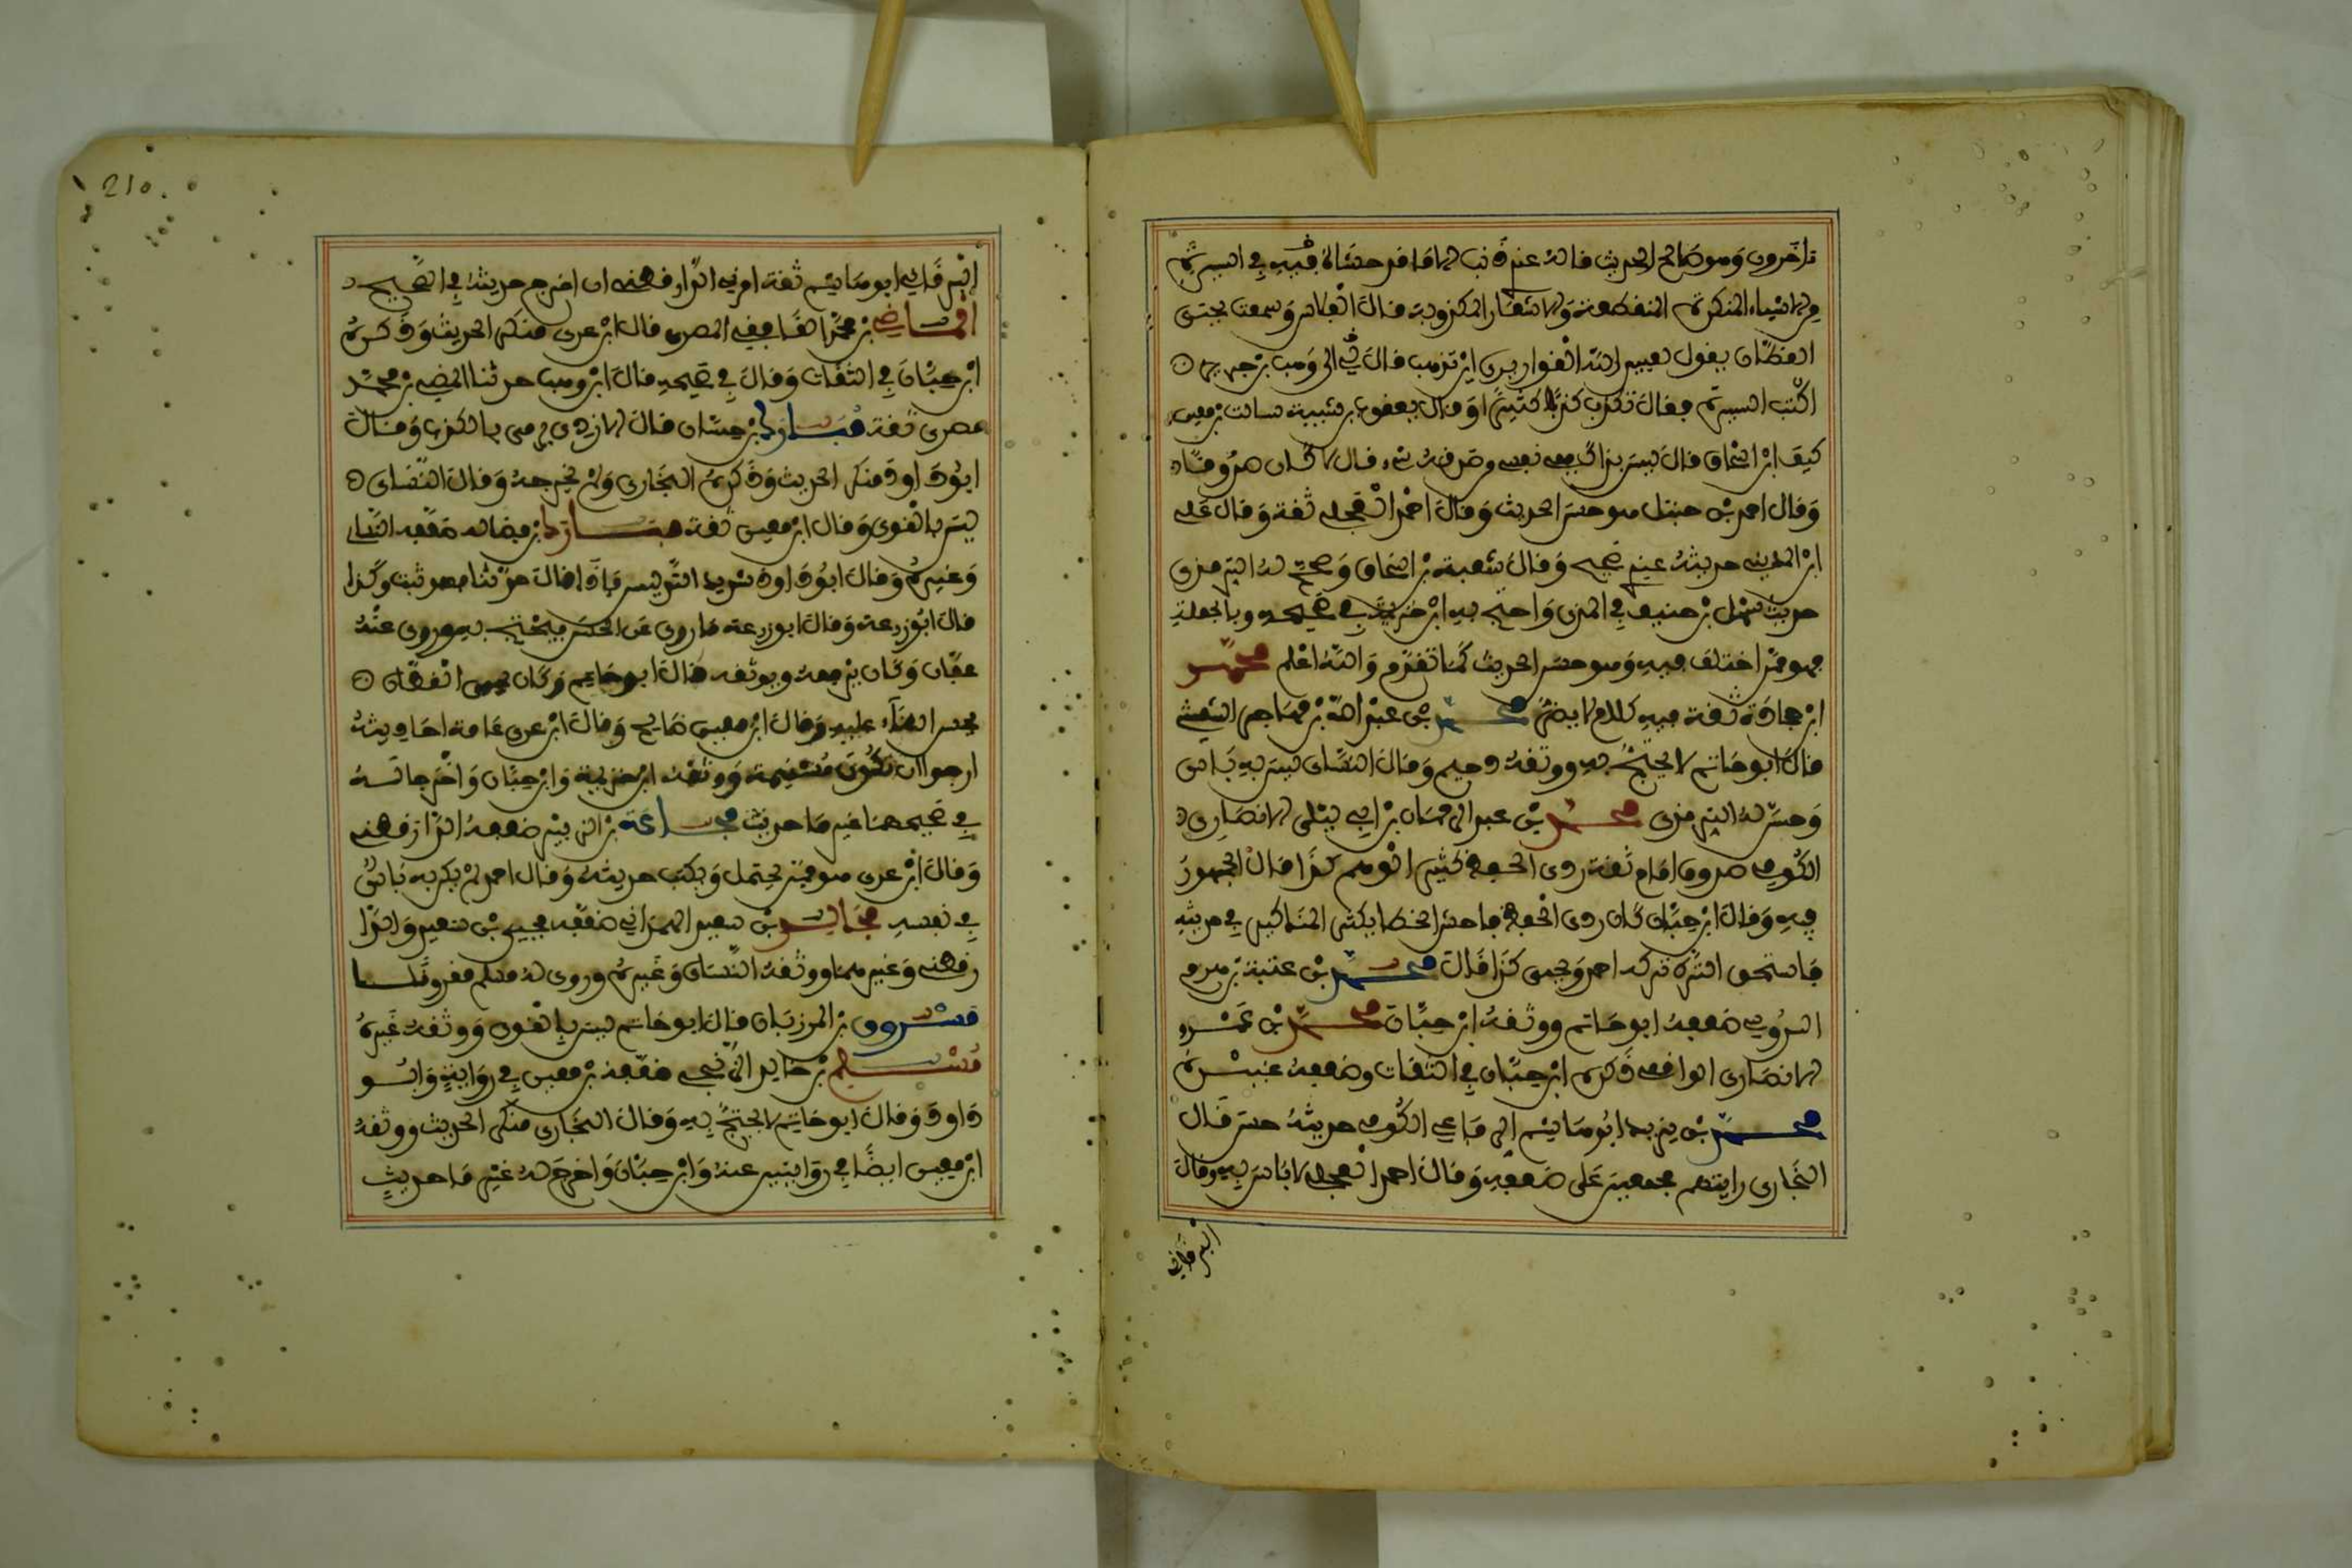 تاخرون وهو صالح الحديث ما له عندي ذنب الا ما قد حشاه في السيرة
من الاشياء المنكرة المنقطعة والاشعار المكذوبة قال الفلاس وسمعت يحيى
القطان يقول لعبيد الله القواريري اين تذهب قال الى وهب بن جرير
اكتب السيرة فقال تكتب كذبا كثيرا وقال يعقوب بن شيبة سالت بن معين
كيف ابن اسحاق قال ليس بذاك قلت ففي نفسك من صدقه شيء قال لا كان صدوقا
وقال احمد بن حنبل هو حسن الحديث وقال احمد العجلي ثقة وقال علي
ابن المديني حديثه عندي صحيح وقال شعبة بن اسحاق وصحح له الترمذي
حديث سهل بن حنيف في المذي واحتج به ابن خزيمة في صحيحه وبالجملة
فهو ممن اختلف فيه وهو حسن الحديث كما تقدم والله اعلم محمد
ابن جحادة ثقة فيه كلام لا يضر محمد بن عبد الله بن مهاجر الشعيثي
قال ابو حاتم لا يحتج به ووثقه دحيم وقال النسائي ليس به باس
وحسن له الترمذي محمد بن عبد الرحمان بن ابي ليلى الانصاري
الكوفي صدوق امام ثقة ردي الحفظ كثير الوهم كذا قال الجمهور
فيه وقال ابن حبان كان ردي الحفظ فاحش الخطا يكثر المناكير في حديثه
فاستحق الترك تركه احمد ويحيى كذا قال محمد بن عقبة بن هرم
السدوسي ضعفه ابو حاتم ووثقه ابن حبان محمد بن عمرو
الانصاري الواقفي ذكره ابن حبان في الثقات وضعفه غيره
محمد بن يزيد ابو هاشم الرفاعي الكوفي حديثه حسن قال
البخاري رايتهم مجمعين على ضعفه وقال احمد العجلي لا باس به وقال
البرقاني
210.
البرقاني ابو هاشم ثقة امرني الدارقطني ان اخرج حديثه في الصحيح
الماضي بن محمد الغافقي المصري قال ابن عدي منكر الحديث وذكره
ابن حبان في الثقات وقال في صحيحه قال ابن وهب حدثنا الماضي بن محمد
مصري ثقة مبارك بن حسان قال الازدي يرمى بالكذب وقال
ابو داود منكر الحديث وذكره البخاري ولم يجرحه وقال النسائي
ليس بالقوي وقال ابن معين ثقة مبارك بن فضاله ضعفه النسائي
وغيره وقال ابو داود شديد التدليس فاذا قال حدثنا فهو ثبت وكذا
قال ابو زرعة وقال ابو زرعة ما روى عن الحسن فيحتج به وروى عنه
عفان وكان يرفعه ويوثقه قال ابو حاتم وكان يحيى القطان
يحسن الثناء عليه وقال ابن معين صالح وقال ابن عدي عامة احاديثه
ارجوا ان تكون مستقيمة ووثقه ابن خزيمة وابن حبان واخرجا له
في صحيحهما غير ما حديث مجاعة بن الزبير ضعفه الدارقطني
وقال ابن عدي هو ممن يحتمل ويكتب حديثه وقال احمد لم يكن به باس
في نفسه مجالد بن سعيد الهمداني ضعفه يحيى بن سعيد والدا
رقطني وغيرهما ووثقه النسائي وغيره وروى له مسلم مقرونا
مسروق بن المرزبان قال ابو حاتم ليس بالقوي ووثقه غيره
مسلم بن خالد الزنجي ضعفه بن معين في رواية وابو
داود وقال ابو حاتم لا يحتج به وقال البخاري منكر الحديث ووثقه
ابن معين ايضا في روايتين عنه وابن حبان واخرج له غير ما حديث